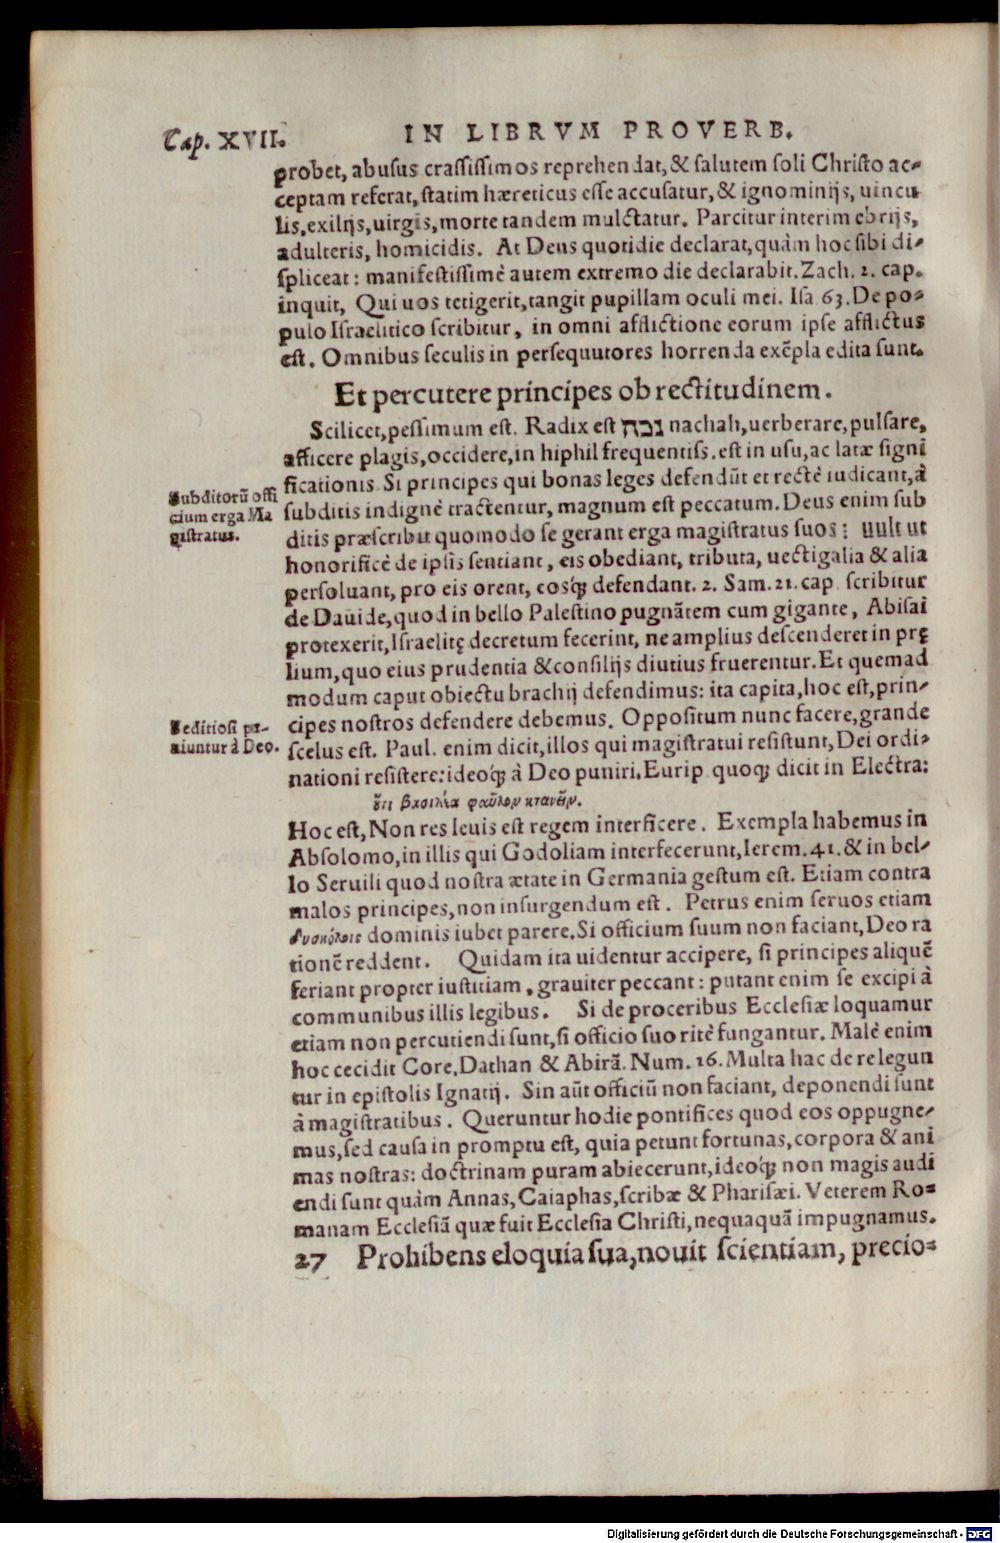 Cap. XVII. IN LIBRVM PROVERB.
probet, abusus crassissimos reprehendat, & salutem soli Christo ac-
ceptam referat, statim hæreticus esse accusatur, & ignominijs, uincu
lis, exilijs, uirgis, morte tandem mulctatur. Parcitur interim ebrijs,
adulteris, homicidis. At Deus quotidie declarat, quàm hoc sibi di-
spliceat: manifestissimè autem extremo die declarabit. Zach. 2. cap.
inquit, Qui uos tetigerit, tangit pupillam oculi mei. Isa 63. De po-
pulo Israelitico scribitur, in omni afflictione eorum ipse afflictus
est. Omnibus seculis in persequutores horrenda exẽpla edita sunt.
Et percutere principes ob rectitudinem.
Scilicet, pessimum est. Radix est נכה nachah, uerberare, pulsare,
afficere plagis, occidere, in hiphil frequentiss. est in usu, ac latæ signi
ficationis Si principes qui bonas leges defendũt et rectè iudicant, à
Subditorũ offi
cium erga Ma
gistratus.
subditis indignè tractentur, magnum est peccatum. Deus enim sub
ditis præscribit quomodo se gerant erga magistratus suos: uult ut
honorificè de ipsis sentiant, eis obediant, tributa, uectigalia & alia
persoluant, pro eis orent, eosq́; defendant. 2. Sam. 21. cap scribitur
de Dauide, quod in bello Palestino pugnãtem cum gigante, Abisai
protexerit, Israelitę decretum fecerint, ne amplius descenderet in prę
lium, quo eius prudentia & consilijs diutius fruerentur. Et quemad
modum caput obiectu brachij defendimus: ita capita, hoc est, prin-
Seditiosi pu-
niuntur à Deo.
cipes nostros defendere debemus. Oppositum nunc facere, grande
scelus est. Paul. enim dicit, illos qui magistratui resistunt, Dei ordi-
nationi resistere: ideoq́; à Deo puniri. Eurip quoq; dicit in Electra:
βασιλῆα φαῦλον κτανεῖν.
Hoc est, Non res leuis est regem interficere. Exempla habemus in
Absolomo, in illis qui Godoliam interfecerunt, Ierem. 41. & in bel-
lo Seruili quod nostra ætate in Germania gestum est. Etiam contra
malos principes, non insurgendum est. Petrus enim seruos etiam
δυσκόλοις dominis iubet parere. Si officium suum non faciant, Deo ra
tionẽ reddent. Quidam ita uidentur accipere, si principes aliquẽ
feriant propter iustitiam, grauiter peccant: putant enim se excipi à
communibus illis legibus. Si de proceribus Ecclesiæ loquamur
etiam non percutiendi sunt, si officio suo ritè fungantur. Malè enim
hoc cecidit Core, Dathan & Abirã. Num. 16. Multa hac de re legun
tur in epistolis Ignatij. Sin aũt officiũ non faciant, deponendi sunt
à magistratibus. Queruntur hodie pontifices quod eos oppugne-
mus, sed causa in promptu est, quia petunt fortunas, corpora & ani
mas nostras: doctrinam puram abiecerunt, ideoq́; non magis audi
endi sunt quàm Annas, Caiaphas, scribæ & Pharisæi. Veterem Ro-
manam Ecclesiã quæ fuit Ecclesia Christi, nequaquã impugnamus.
27 Prohibens eloquia sua, nouit scientiam, precio-
Digitalisierung gefördert durch die Deutsche Forschungsgemeinschaft - DFG